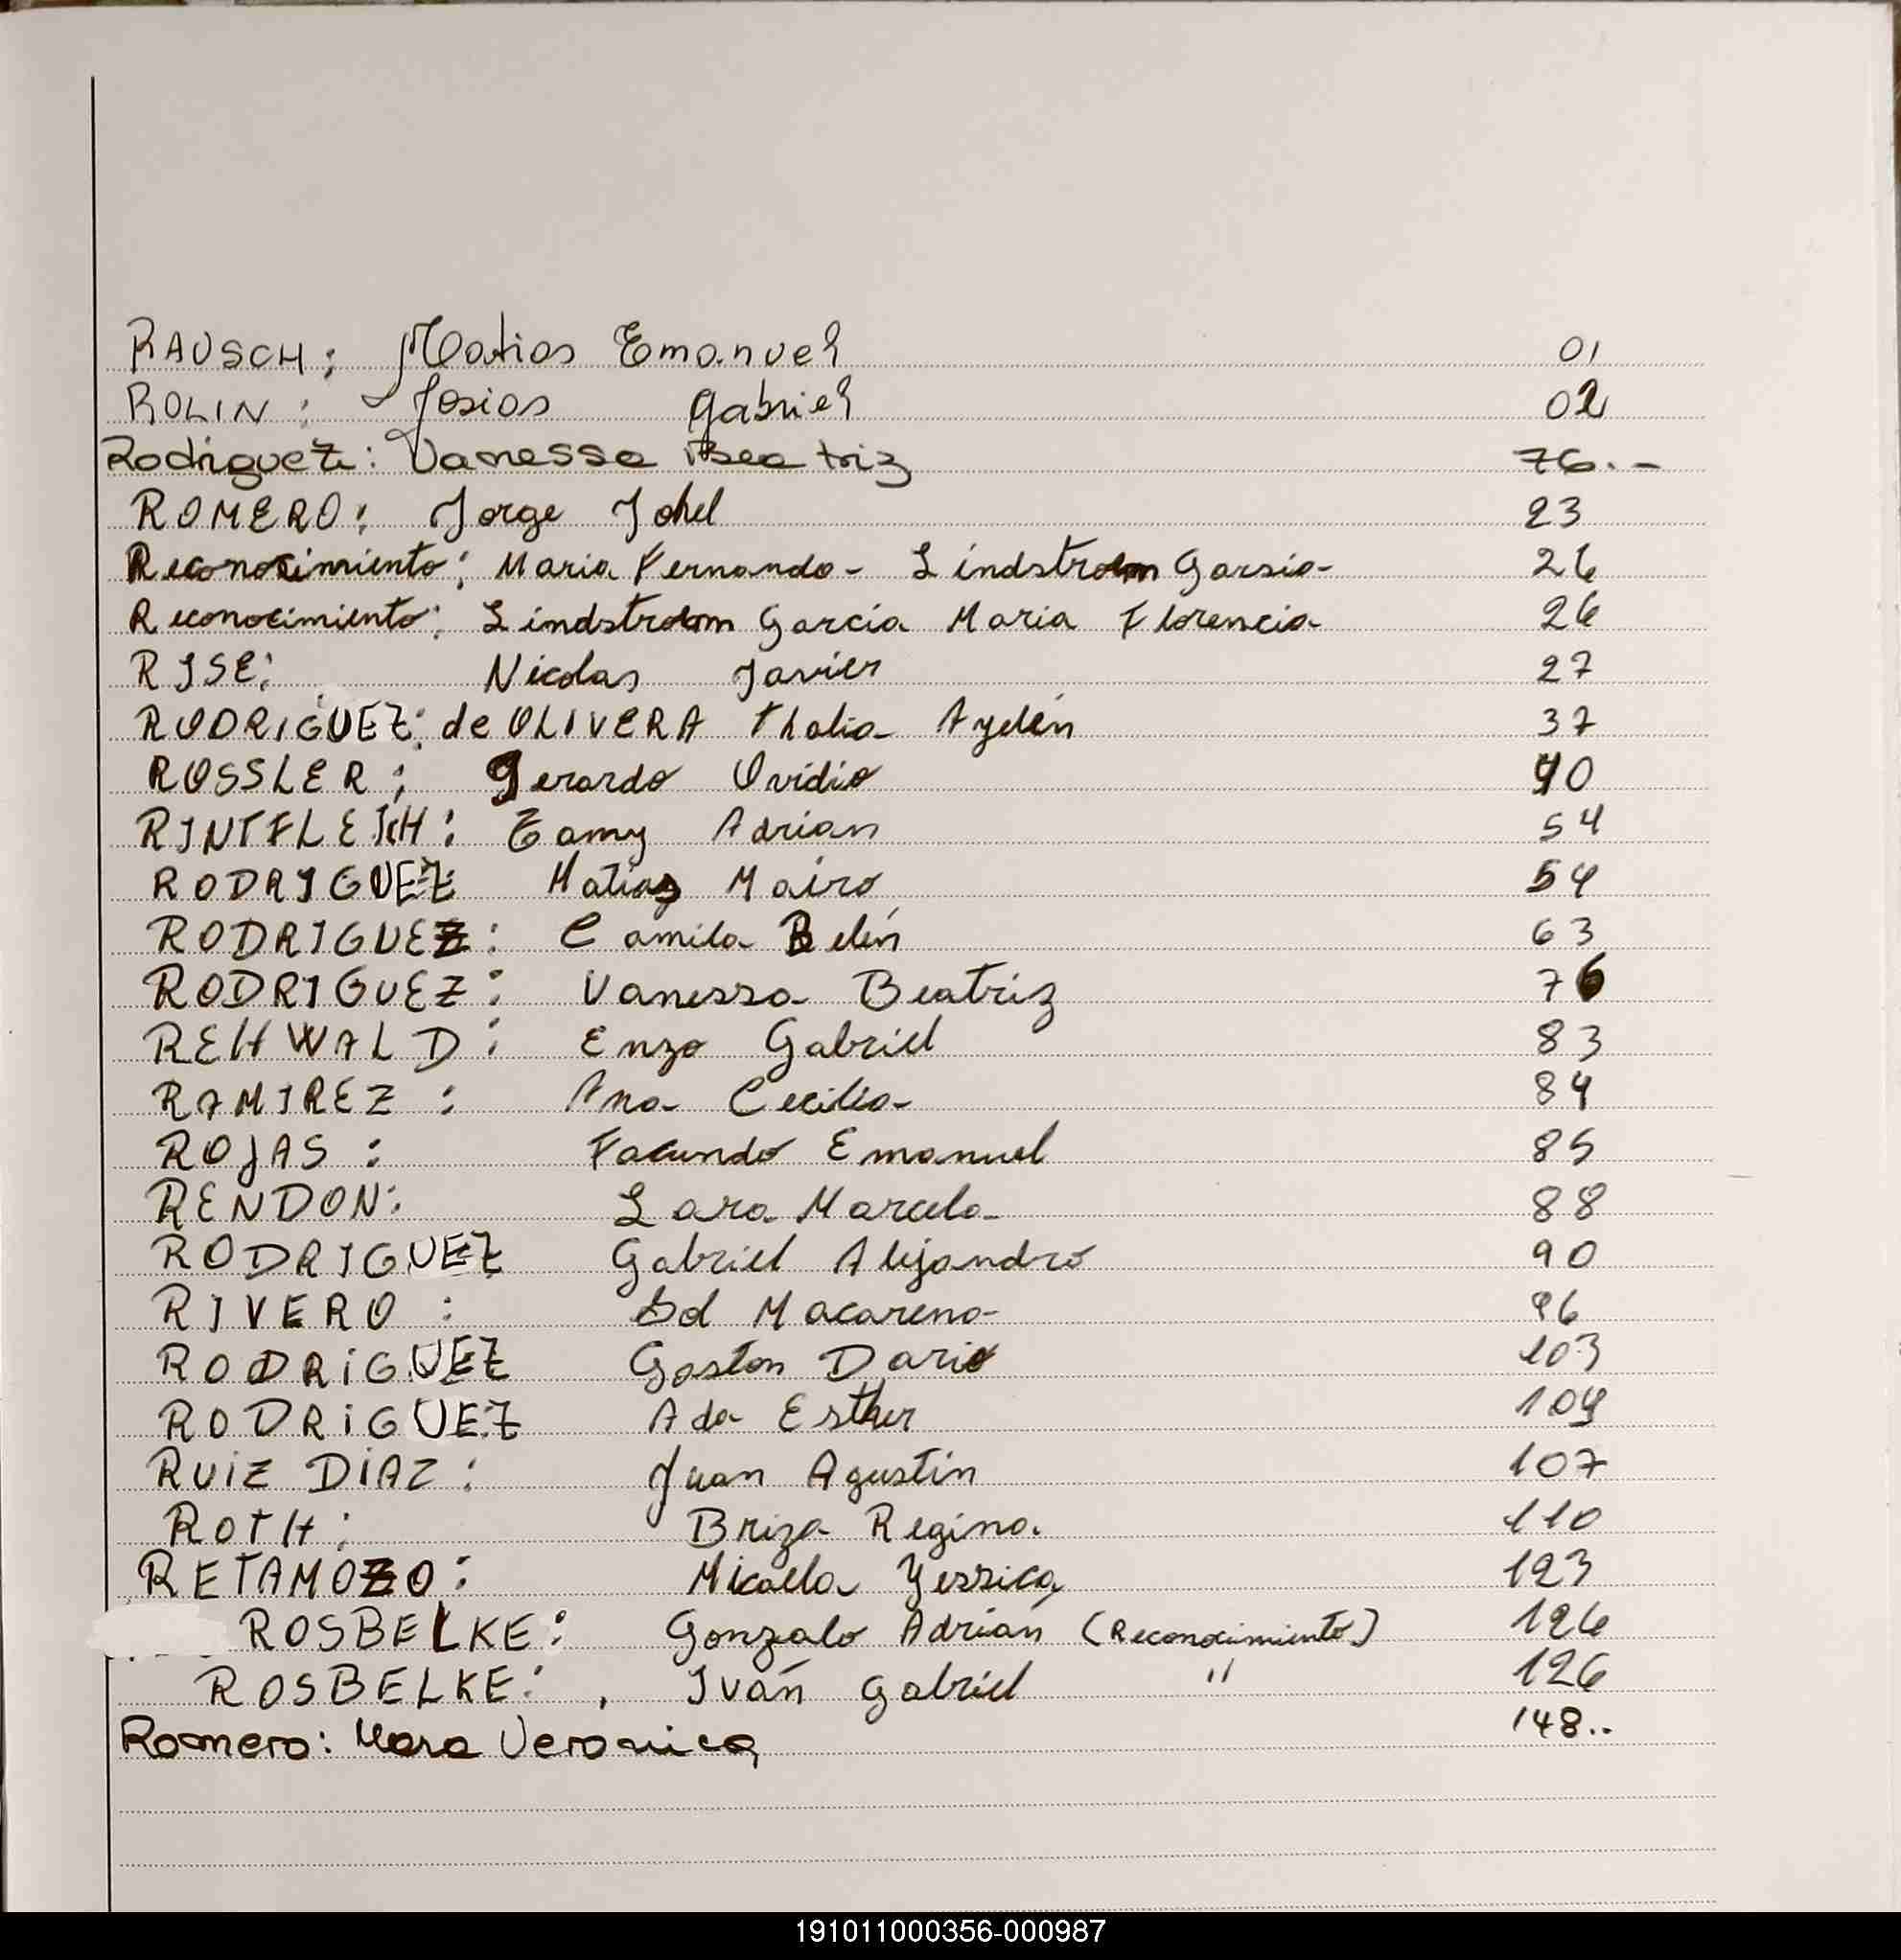 RAUSCH: Matias Emanuel 01
ROLIN: Josias Gabriel 02
Rodriguez: Vanessa Beatriz 76.-
ROMERO: Jorge Johel 23
Reconocimiento: Maria Fernanda- Lindstrom Garsia- 26
Reconocimiento: Lindstrom García Maria Florencia 26
RISE: Nicolas Javier 27
RODRIGUEZ: de OLIVERA Thalia Aylén 37
ROSSLER: Gerardo Ovidio 40
RINTFLEICH: Tamy Adrian 54
RODRIGUEZ Matias Mairo 54
RODRIGUEZ: Camila Belén 63
RODRIGUEZ: Vanessa Beatriz 76
REHWALD: Enzo Gabriel 83
RAMIREZ: Ana Cecilia 84
ROJAS: Facundo Emanuel 85
RENDON: Lara Marcela 88
RODRIGUEZ Gabriel Alejandro 90
RIVERO: Sol Macarena 96
RODRIGUEZ Gaston Dario 103
RODRIGUEZ Ada Esther 104
RUIZ DIAZ: Juan Agustin 107
ROTH: Briza Regina. 110
RETAMOZO: Micaela Yessica 123
ROSBELKE: Gonzalo Adrián (Reconocimiento) 126
ROSBELKE: Iván Gabriel " 126
Romero: Mara Veronica 148..
191011000356-000987